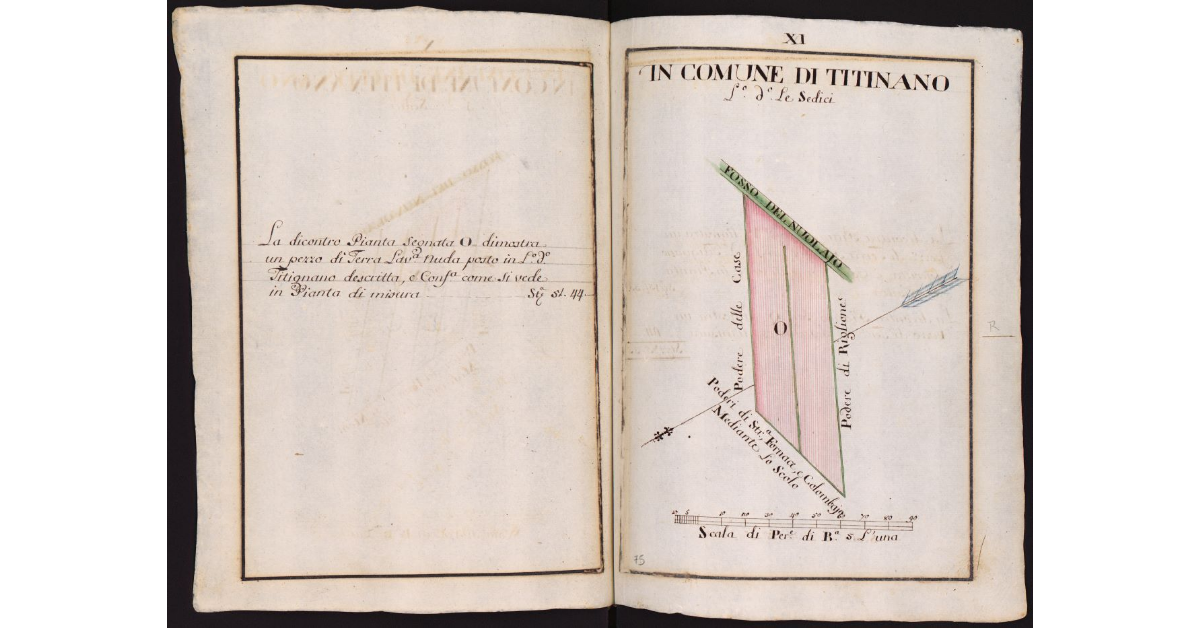 La dicontro Pianta segnata O dimostra
un pezzo di Terra Lav.ª nuda posto in L.º d.º
Titignano descritta, e Conf.ª come si vede
in Pianta di misura St.ª st. 44.
XI
IN COMUNE DI TITINANO
L.º d.º Le Sedici
FOSSO DEL NUOLAJO
Podere delle Case
O
Podere di Riglione
Poderi di Str.ª, Fornace, e Colombajo
Mediante Lo Scolo
Scala di Per.e di B.ª 5. L'una
75
R